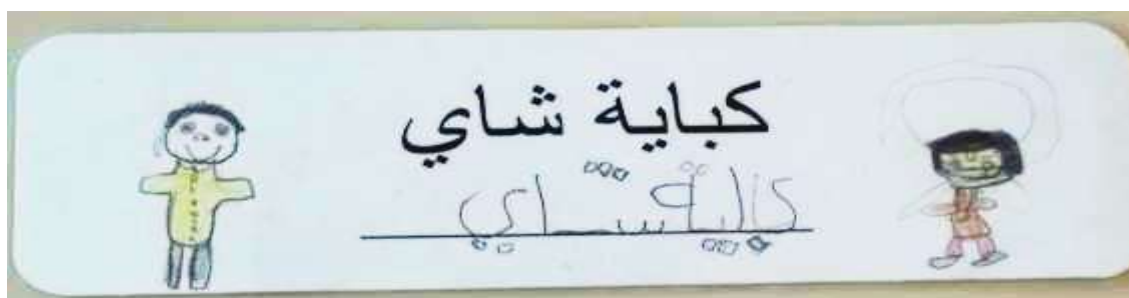 كباية شاي
كباية شاي